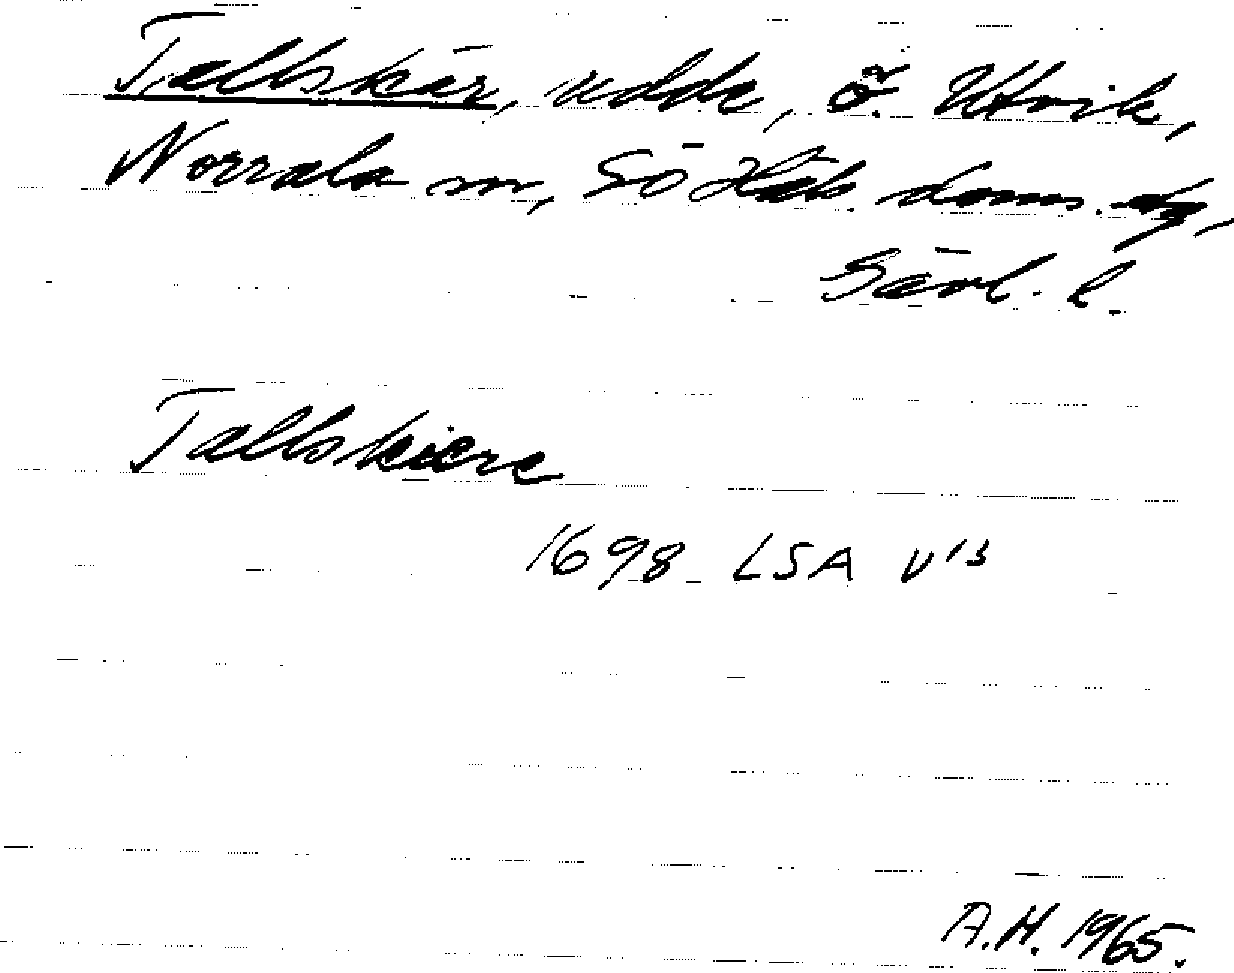 Tallskär, udde, Ö. Utvik,
Norrala sn, Sö Häls. doms. dg,
Gävl. l.
Tallskiere
1698 LSA V 13
A.H. 1965.